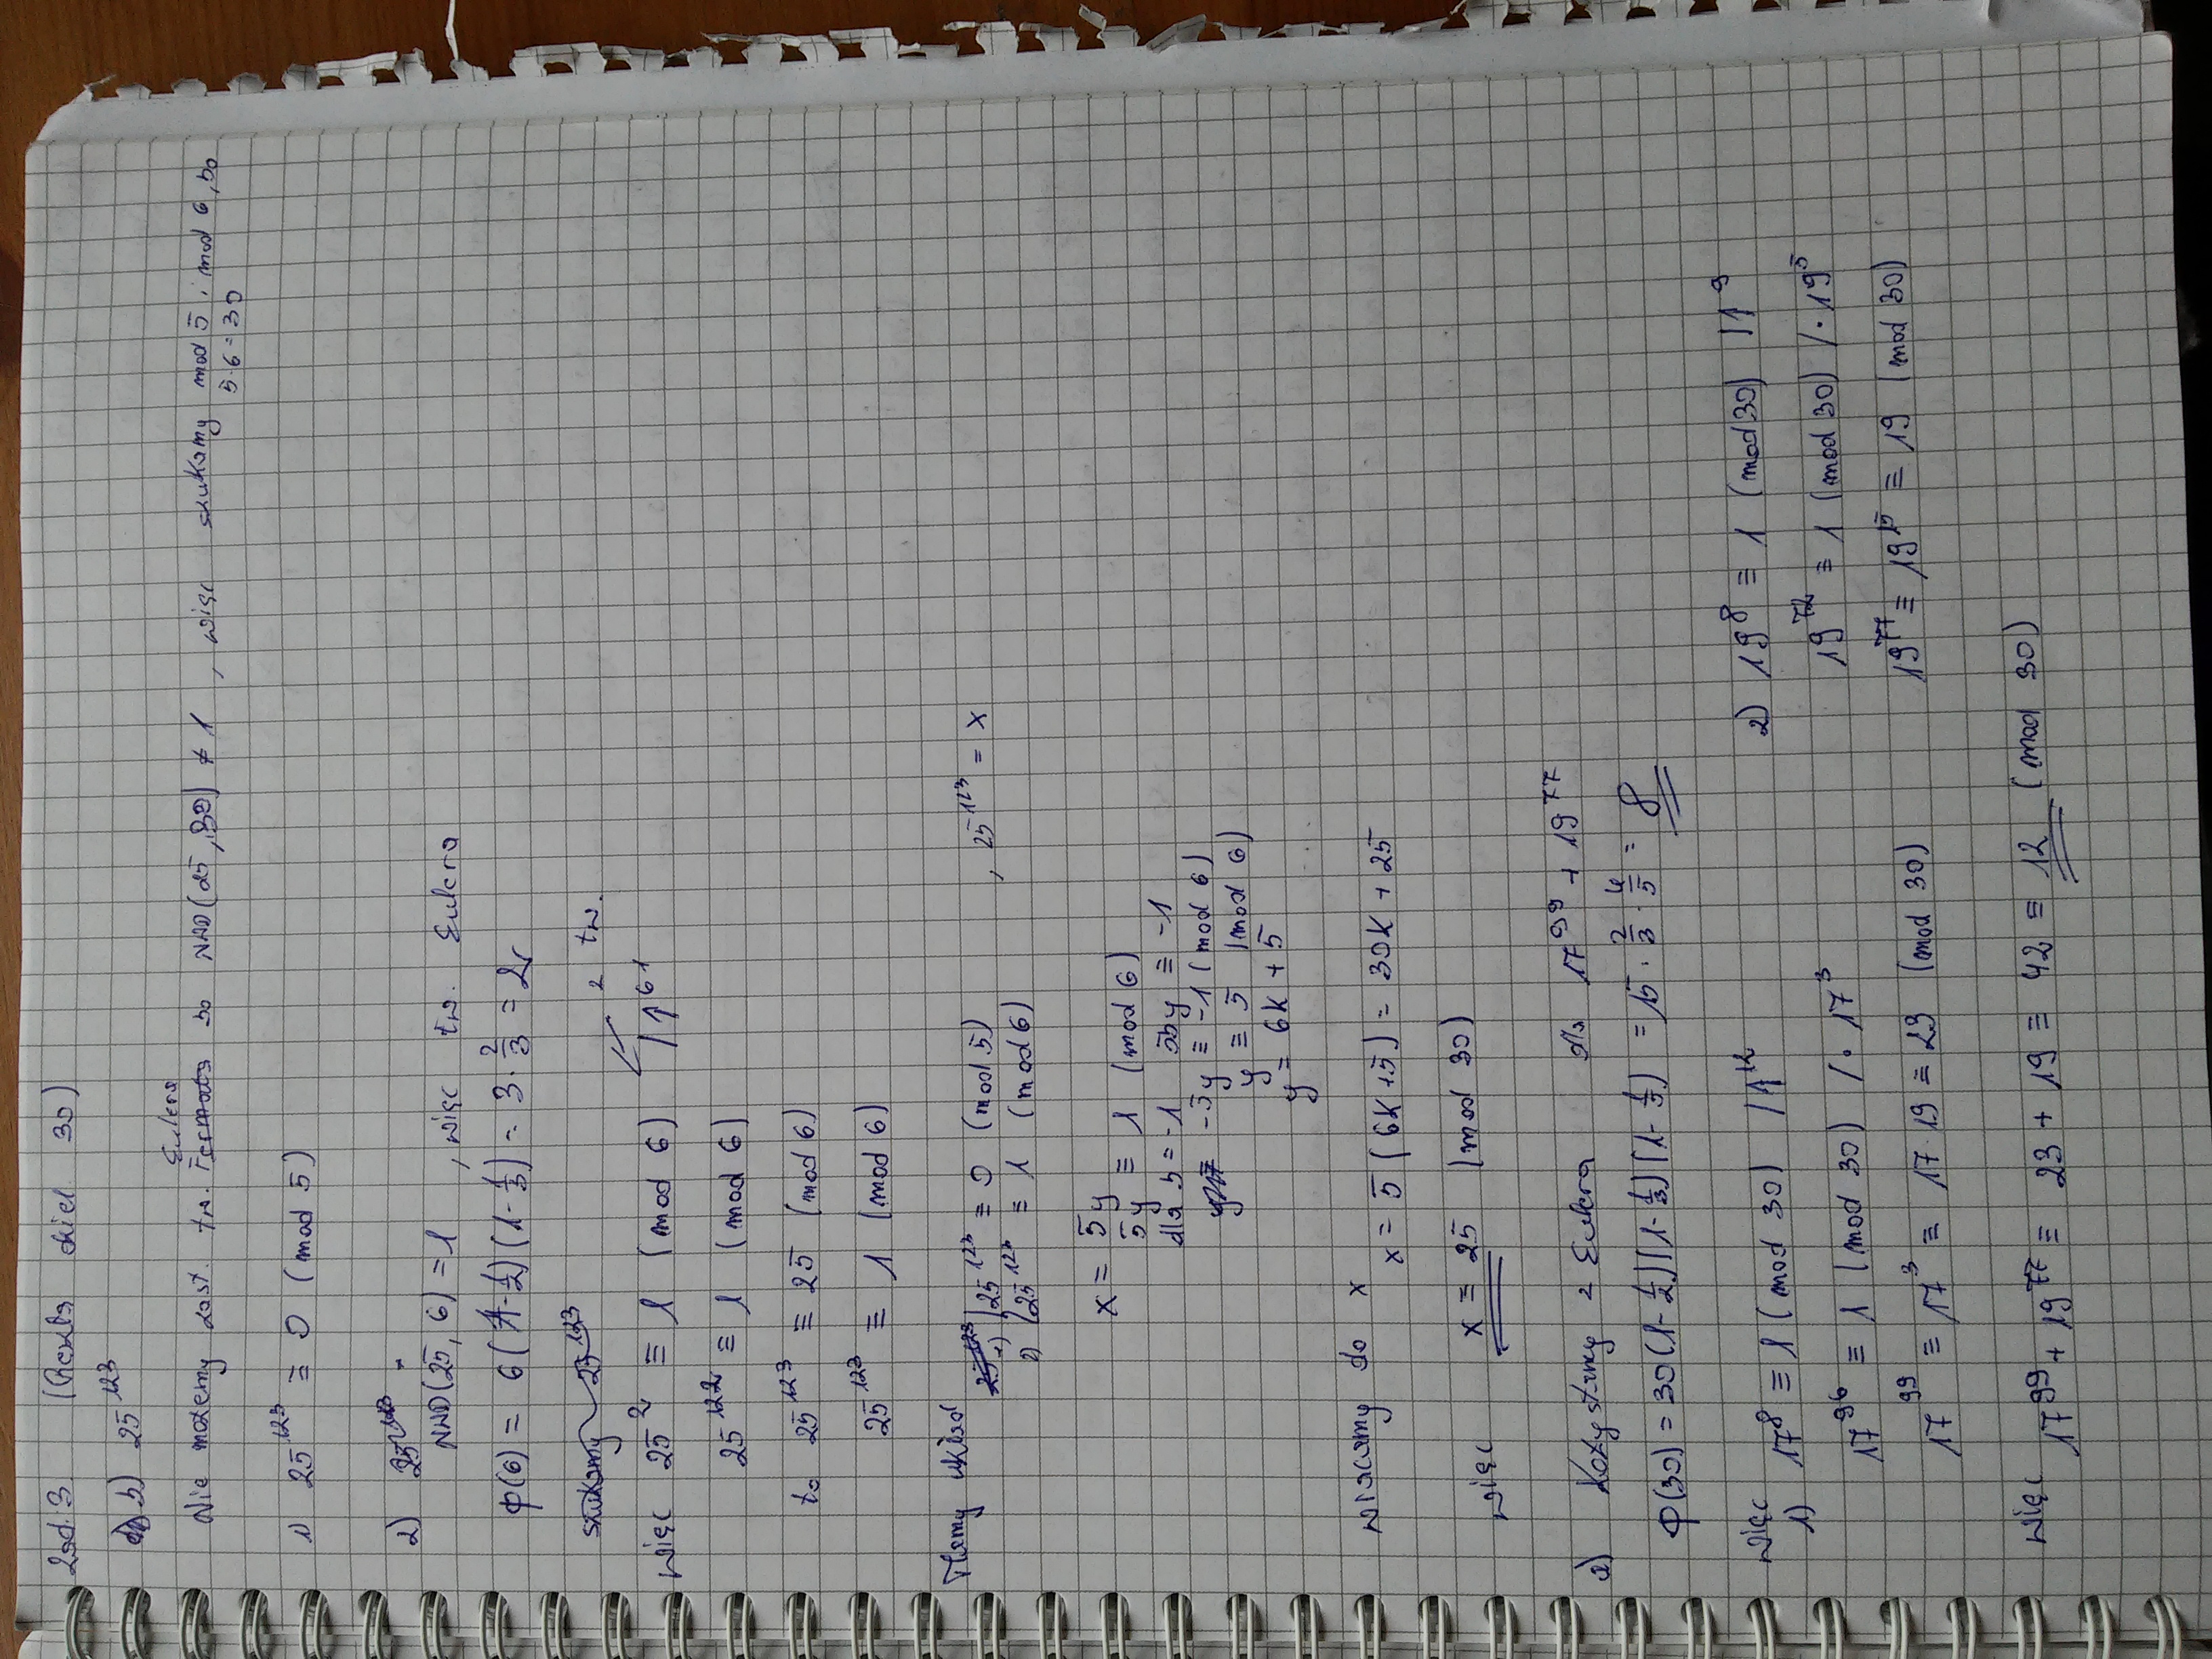 Zad. 3 (Reszta dziel. 30)
b) 25^123
Nie możemy zast. tw. Fermata Eulera bo NWD(25, 30) ≠ 1 , więc szukamy mod 5 i mod 6, bo
5·6 = 30
1) 25^123 ≡ 0 (mod 5)
2) 25^123
NWD(25, 6) = 1 , więc tw. Eulera
φ(6) = 6(1-1/2)(1-1/3) = 3·2/3 = 2
szukamy 25^123
z tw.
więc 25^2 ≡ 1 (mod 6) /↑^61
25^122 ≡ 1 (mod 6)
to 25^123 ≡ 25 (mod 6)
25^123 ≡ 1 (mod 6)
Mamy układ
25^123 1) { 25^123 ≡ 0 (mod 5) , 25^123 = x
2) { 25^123 ≡ 1 (mod 6)
x = 5y
5y ≡ 1 (mod 6)
dla b = -1 5by ≡ -1
-5y ≡ -1 (mod 6)
y ≡ 5 (mod 6)
y = 6k + 5
wracamy do x
x = 5(6k+5) = 30k + 25
więc x ≡ 25 (mod 30)
a) Kozystamy z Eulera dla 17^99 + 19^77
φ(30) = 30(1-1/2)(1-1/3)(1-1/5) = 15·2/3·4/5 = 8
więc
1) 17^8 ≡ 1 (mod 30) /↑^12
17^96 ≡ 1 (mod 30) /· 17^3
17^99 ≡ 17^3 ≡ 17·19 ≡ 23 (mod 30)
2) 19^8 ≡ 1 (mod 30) /↑^9
19^72 ≡ 1 (mod 30) /· 19^5
19^77 ≡ 19^5 ≡ 19 (mod 30)
więc 17^99 + 19^77 ≡ 23 + 19 ≡ 42 ≡ 12 (mod 30)